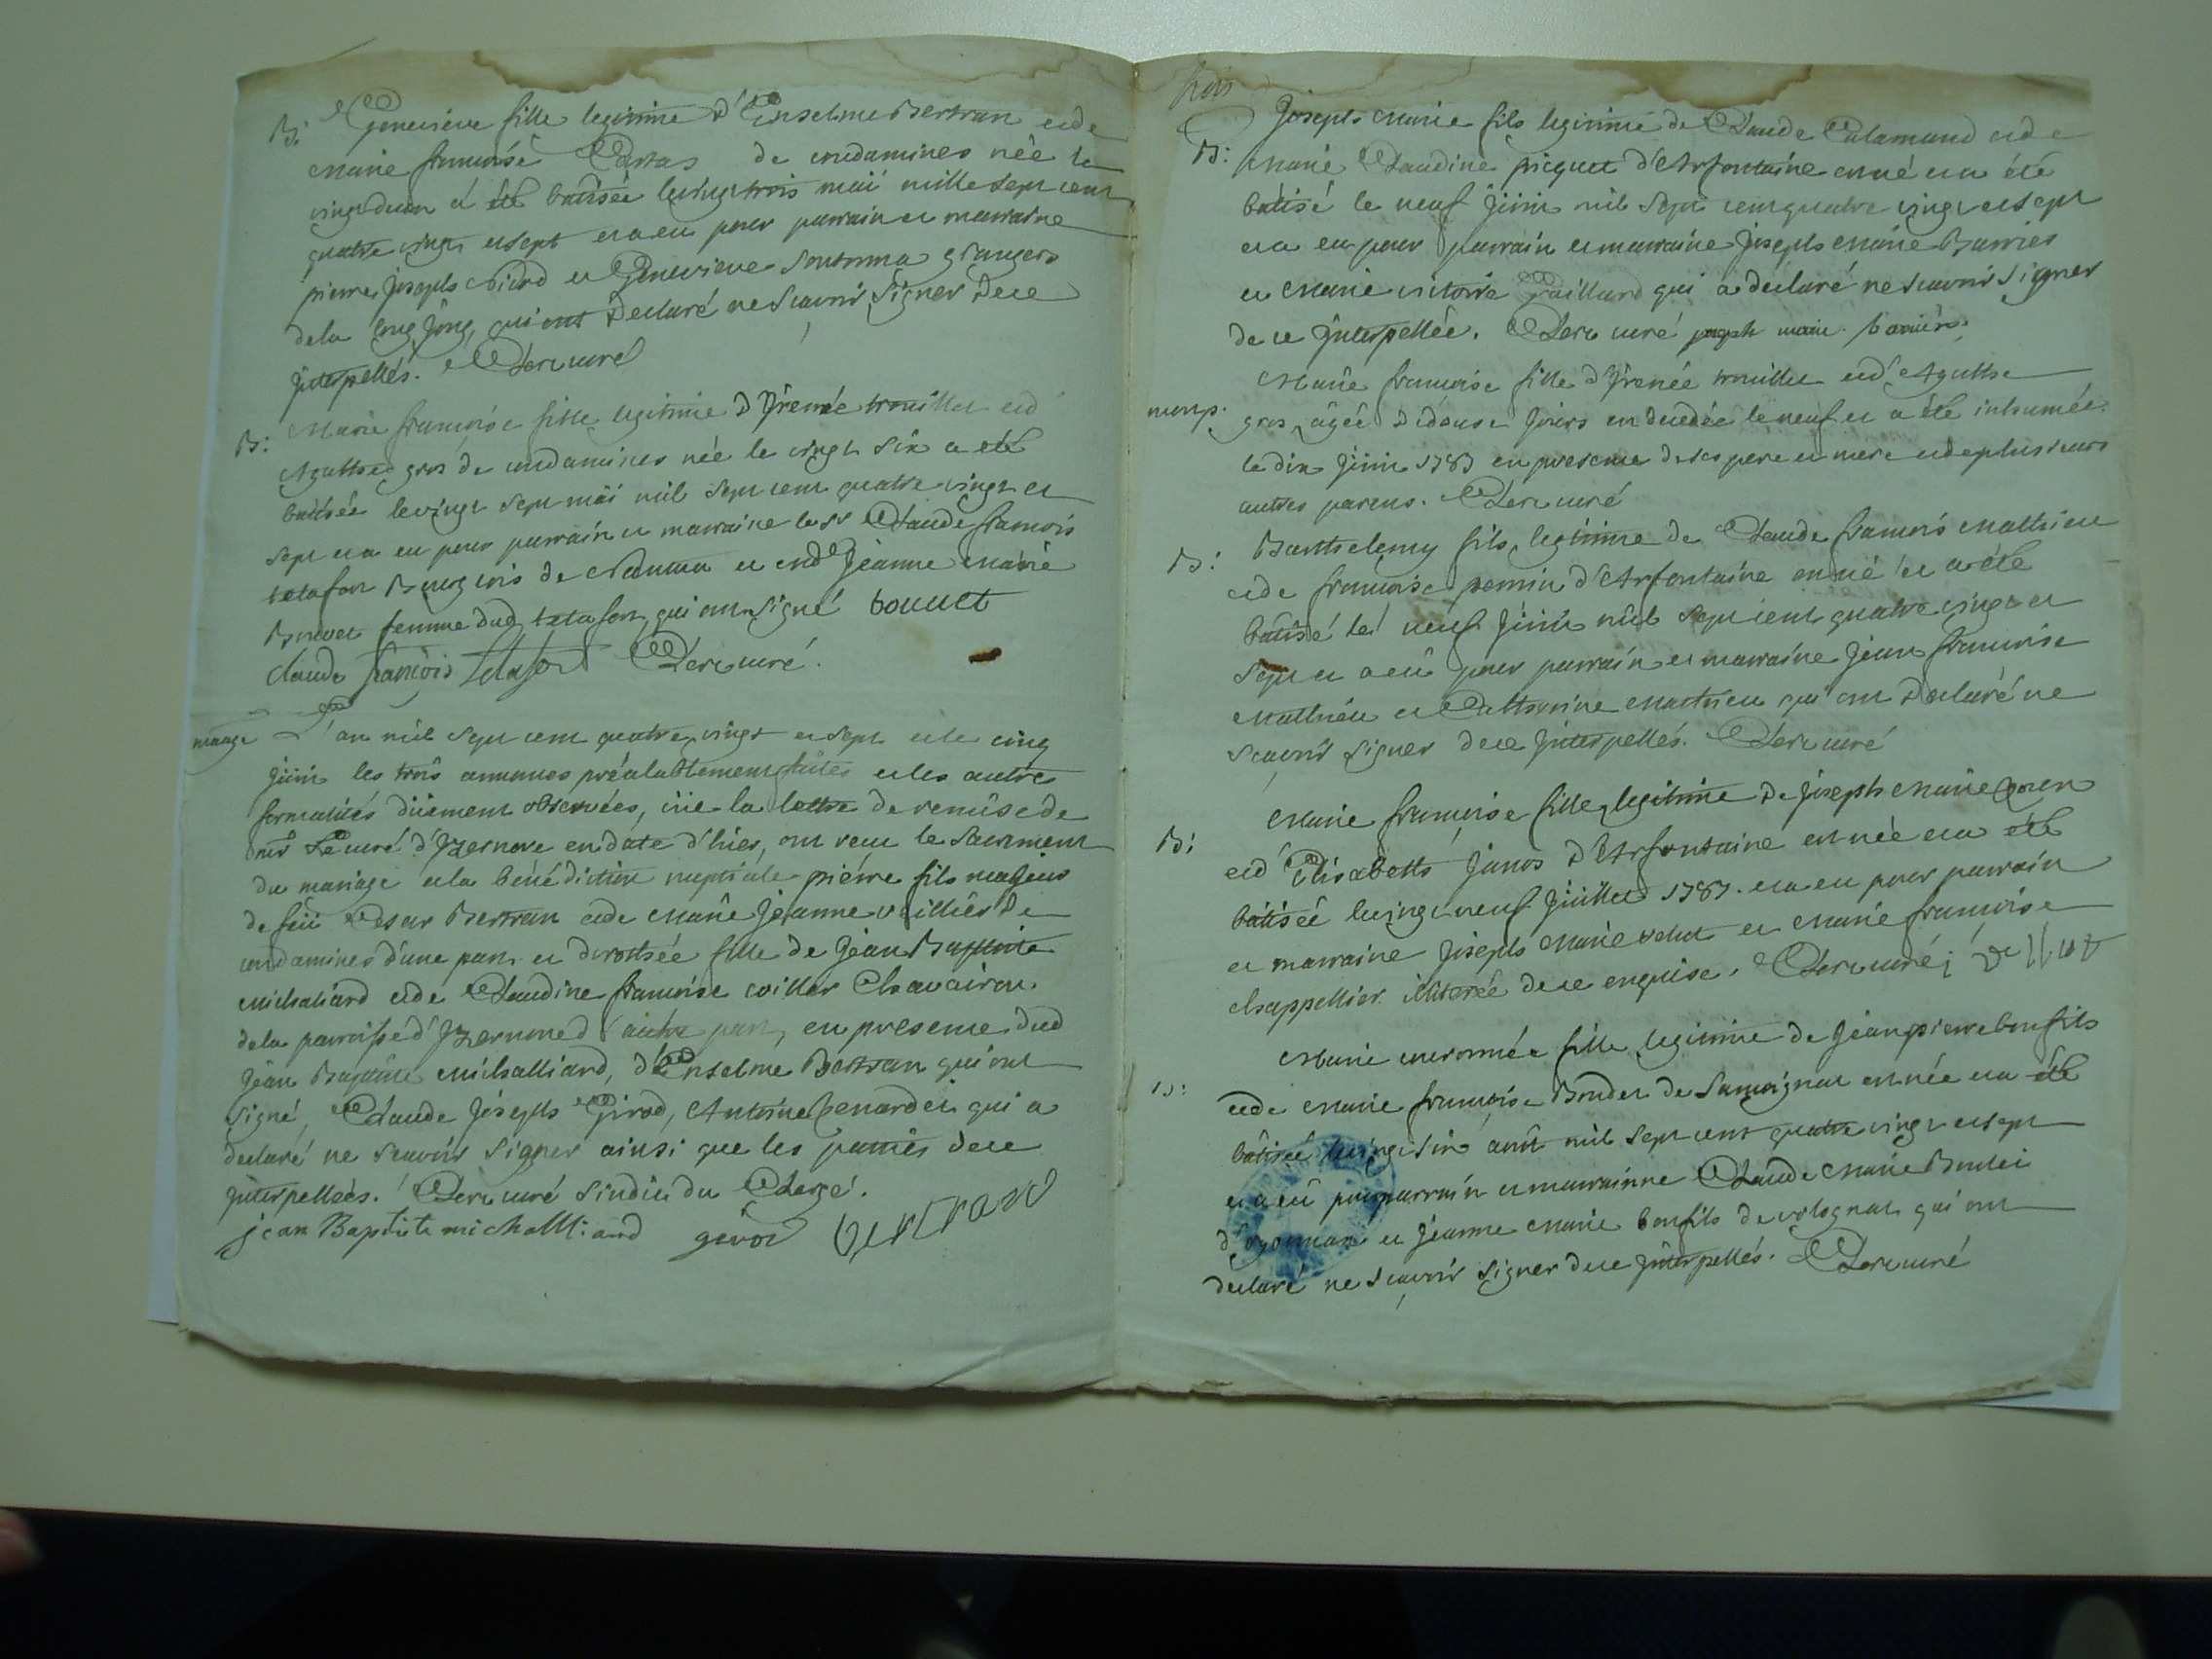 B: Genevieve fille legitime d'Enselme Bertran et de
Marie françoise de condamines née le
vingt deux a été batisée le vingt trois mai mille sept cent
quatre vingt et sept et a eu pour parrain et marraine
pierre joseph et Genevieve Sontonna grangers
de la qui ont declaré ne scavoir signer de ce
interpellés. Clerc curé
B: Marie françoise fille legitime d'jrenée trouillet et d'
Agathe gros de condamines née le vingt six a été
batisée le vingt sept mai mil sept cent quatre vingt et
sept et a eu pour parrain et marraine le sr Claude françois
tetafort Bourgeois de Nantua et jeanne marie
Bouvet femme dud tetafort qui ont signé bouuet
claude françois tetafort Clerc curé.
mariage L'an mil sept cent quatre vingt et sept et le cinq
juin les trois annonces préalablement faites et les autres
formalités düement observées, vüe la lettre de remise de
mr Le curé d'jzernore en date d'hier, ont recu le Sacrement
du mariage et la bénédiction nuptiale pierre fils majeur
de feu Cesar Bertran et de marie jeanne de
condamines d'une part et dorothée fille de jean Baptiste
Michaliard et de Claudine françoise
de la paroisse d'jzernore d'autre part, en presence dud
jean Baptiste michalliard, d'Enselme Bertran qui ont
signé, Claude joseph Girod, Antoine qui a
declaré ne scavoir signer ainsi que les parties de ce
interpellées. Clerc curé sindic du Clergé.
jean Baptiste michalliard girod bertrand
trois
B: joseph marie fils legitime de Claude Calamand et de
marie Claudine picquet d'Arfontaine est né et a été
batisé le neuf juin mil sept cent quatre vingt et sept
et a eu pour parrain et marraine joseph marie Barrier
et marie victoire Gaillard qui a déclaré ne scavoir signer
de ce interpellée. Clerc curé joseph marie barrier
mort. Marie françoise fille d'jrenée trouillet et d'Agathe
gros, âgée de douse jours est decedée le neuf et a été inhumée
le dix juin 1787 en presence de ses pere et mere et de plusieurs
autres parens. Clerc curé
B: Barthelemy fils legitime de Claude françois mathieu
et de françoise d'Arfontaine est né et a été
batisé le neuf juin mil sept cent quatre vingt et
sept et a eu pour parrain et marraine jean françoise
mathieu et Catherine mathieu qui ont declaré ne
scavoir signer de ce interpellés. Clerc curé
B: Marie françoise fille legitime de joseph marie
et d'Elisabeth d'Arfontaine est née et a été
batisée le vingt neuf juillet 1787. et a eu pour parrain
et marraine joseph marie velut et marie françoise
chappellier illiterée de ce enquise. Clerc curé; vellut
B: Marie fille legitime de jean pierre bonfils
et de marie françoise Boudet de Samognat est née et a été
bâtisée le vingt six août mil sept cent quatre vingt et sept
et a eu pour parrain et marrainne Claude marie
d'oyonnax et jeanne marie bonfils de volognat qui ont
declaré ne scavoir signer de ce interpellés. Clerc curé